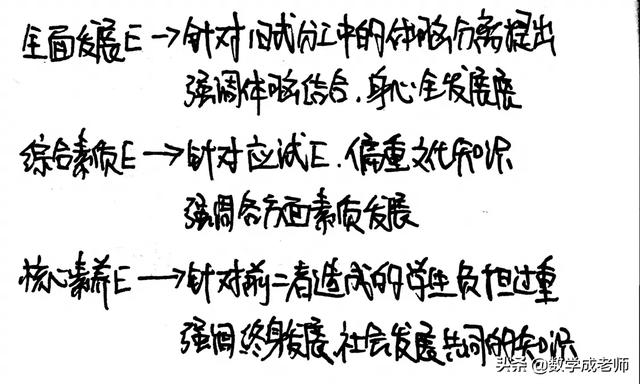 全面发展E→针对旧式分工中的体脑分离提出
强调体脑结合、身心全发展展
综合素质E→针对应试E、偏重文化知识
强调各方面素质发展
核心素养E→针对前二者造成的学生负担过重
强调终身发展、社会发展共同的知识
头条@数学成老师